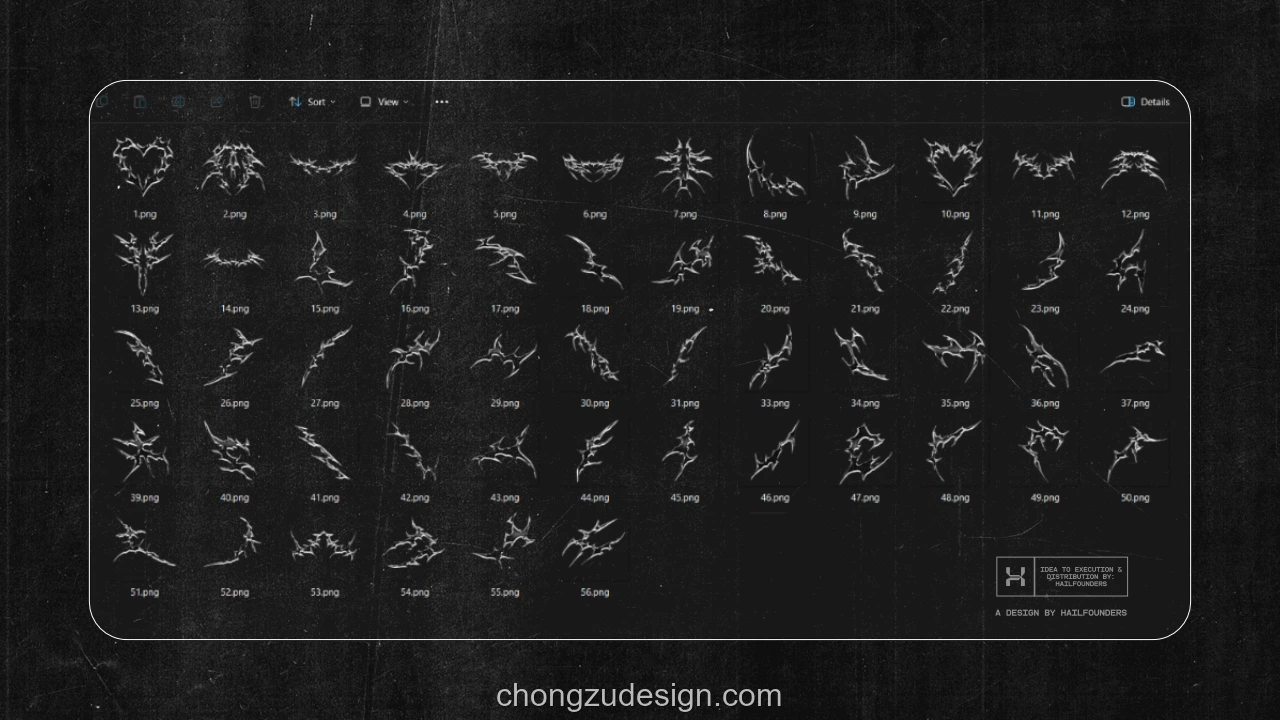 Sort
View
Details
1.png 2.png 3.png 4.png 5.png 6.png 7.png 8.png 9.png 10.png 11.png 12.png
13.png 14.png 15.png 16.png 17.png 18.png 19.png 20.png 21.png 22.png 23.png 24.png
25.png 26.png 27.png 28.png 29.png 30.png 31.png 33.png 34.png 35.png 36.png 37.png
39.png 40.png 41.png 42.png 43.png 44.png 45.png 46.png 47.png 48.png 49.png 50.png
51.png 52.png 53.png 54.png 55.png 56.png
IDEA TO EXECUTION &
DISTRIBUTION BY:
HAILFOUNDERS
A DESIGN BY HAILFOUNDERS
chongzudesign.com